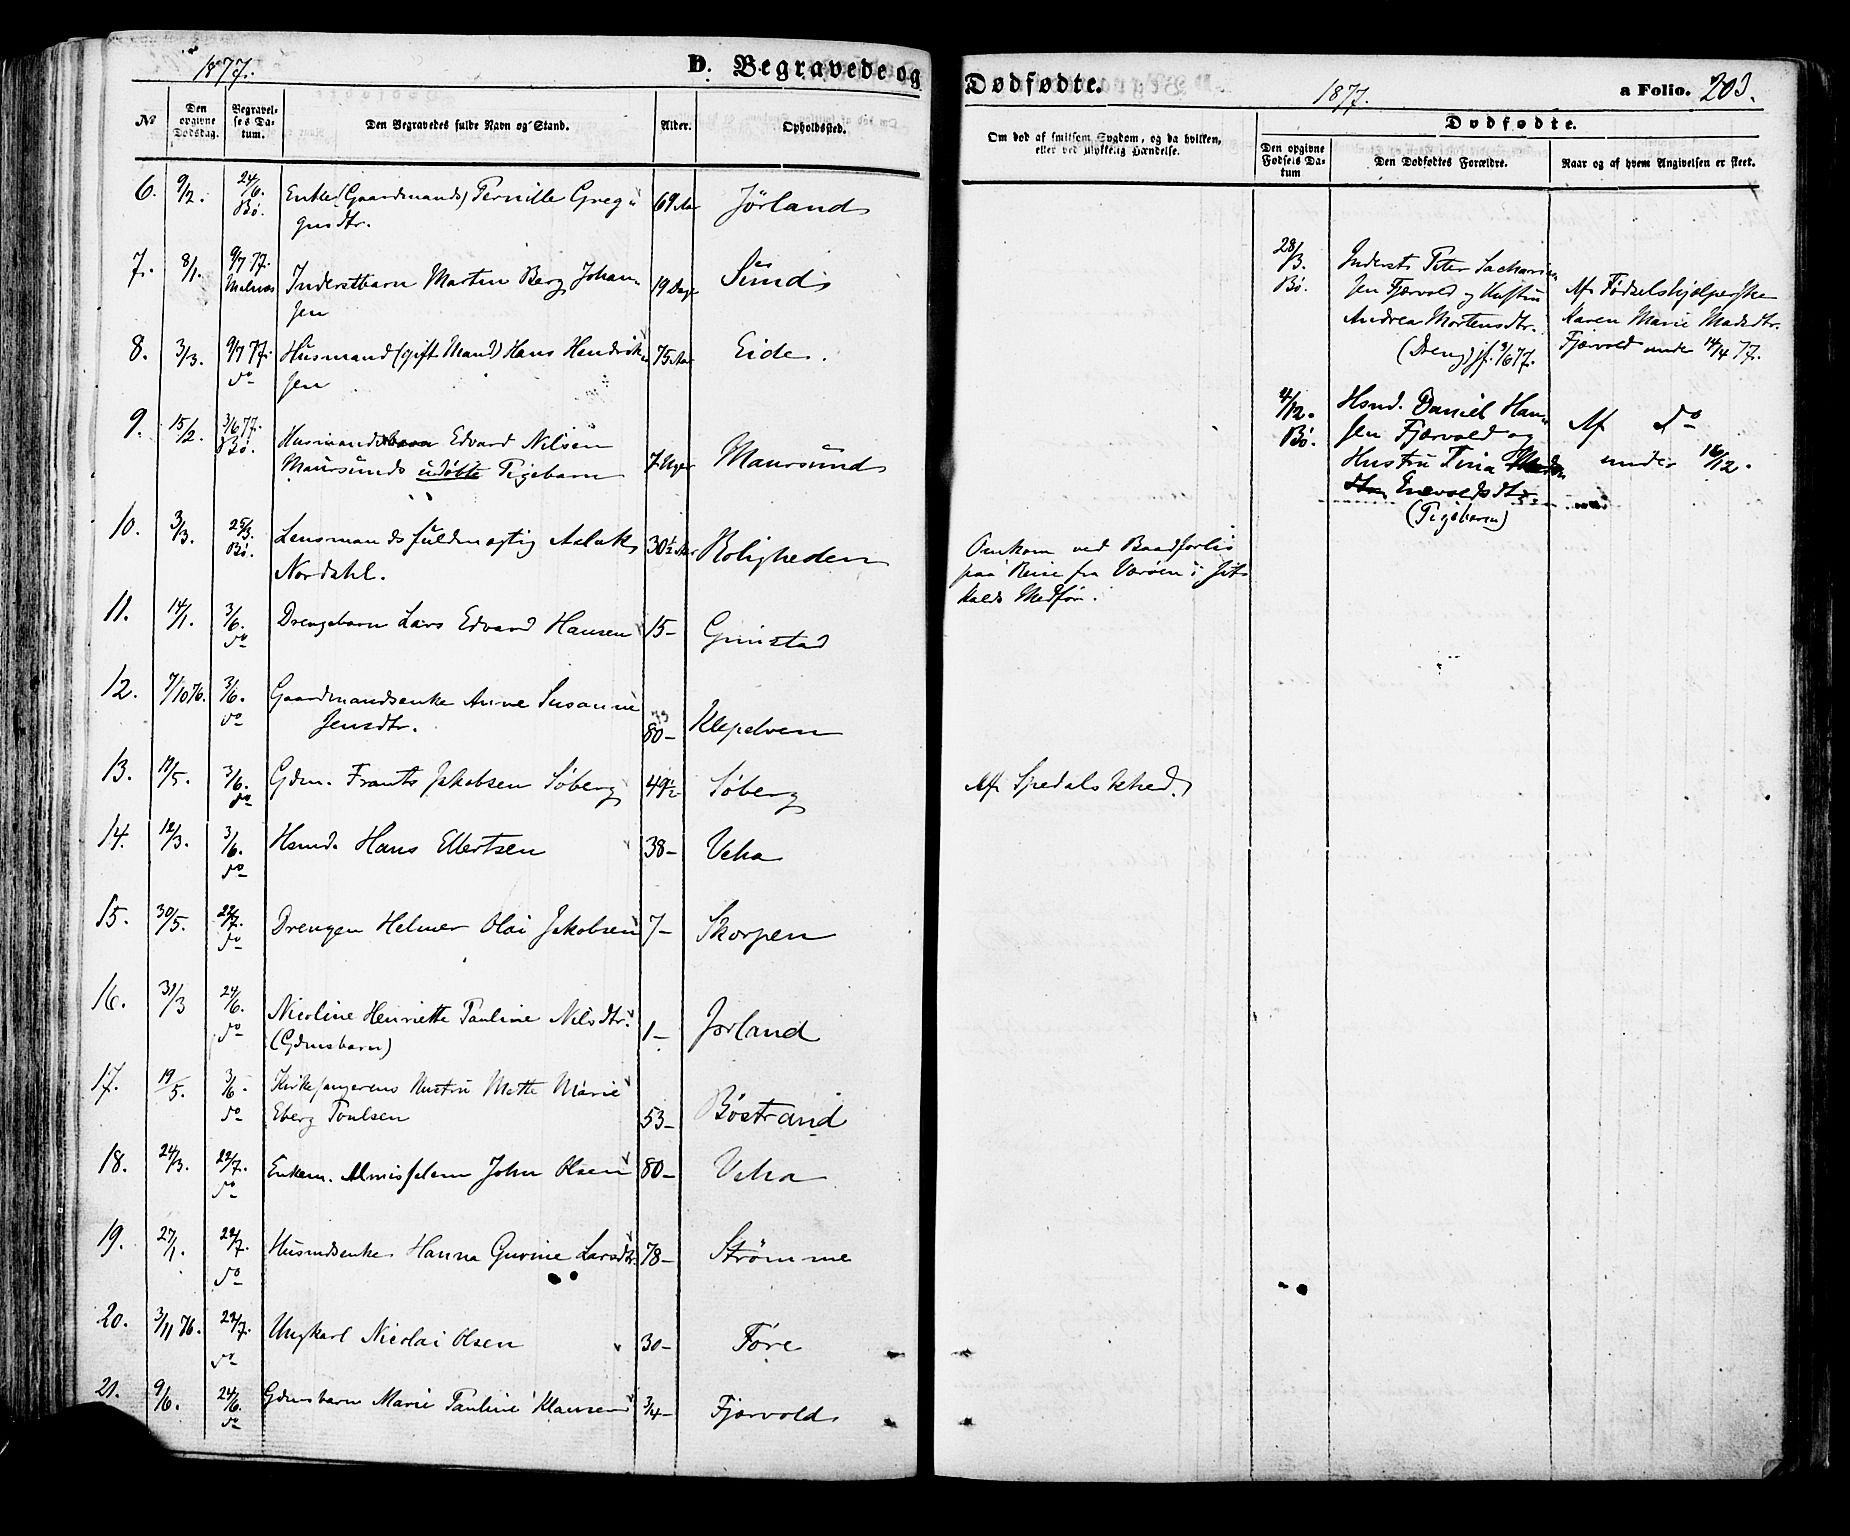 1877.
D. Begravede og
№
Den opgivne Dødsdag.
Begravelses Datum.
Den Begravedes fulde Navn og Stand.
Alder.
Opholdssted.
6. 9/2. 24/6. Bø. Enke (Gaardmands) Pernille Greg 69 Aar Jørland
gusdtr.
7. 8/1. 9/7 77. Melnæs Inderstbarn Martin Berg Johan 19 Dage Sund
sen
8. 3/3. 9/7 77. do Husmand (gift Mand) Hans Hendrik 75 Aar Eide.
sen
9. 15/2. 3/6 77. Bø. Husmands Edvard Nilsen
Maursunds udøbte Pigebarn 7 Uger Maursund
10. 3/3. 25/3. Bø. Lensmandsfuldmægtig Aslak 30½ Aar Roligheden
Nordahl.
11. 14/1. 3/6. do Drengebarn Lars Edvard Hansen 15- Grimstad
12. 7/10 76. 3/6. do Gaardmandsenke Anne Susanne
Jensdtr. 80- Klepelven
13. 19/5. 3/6. do Gdm. Frants Jakobsen Søberg 49½ Søberg
14. 12/3. 3/6. do Hsmd. Hans Ellertsen 38- Veha
15. 30/5. 22/7. do Drengen Helmer Olai Jakobsen 7- Skorpen
16. 31/3 24/6. do Nicoline Henriette Pauline Nilsdtr. 1- Jørland
(Gdmsbarn)
17. 19/5. 3/6. do Kirkesangerens Hustru Mette Marie
Eberg Poulsen 53- Bøstrand
18. 24/3. 22/7. do Enkem. Almisselem John Olsen 80- Veha
19. 27/1. 22/7. do Husmdsenke Hanna Gurine Larsdtr. 78- Strømme
20. 3/11 76. 22/7. do Ungkarl Nicolai Olsen 30- Føre
21. 9/6. 24/6. do Gdmsbarn Marie Pauline Klausen 3/4- Fjærvold
Dødfødte.
1877.
a Folio. 203.
Om død af smitsom Sygdom, og da hvilken,
eller ved ulykkelig Hændelse.
Dødfødte.
Den opgivne Fødsels Datum
Den Dødfødtes Forældre.
Naar og af hvem Angivelsen er skeet.
28/3. Bø. Inderst Peter Sacharia
sen Fjærvold og Hustru
Andrea Mortensdtr.
(Dreng) jf. 9/6 77.
Af Fødselshjælperske
Karen Marie Madsdtr.
Fjærvold under 14/4 77.
4/12. Bø. Hsmd. Daniel Han
sen Fjærvold og
Hustru Tina
Enevoldsdtr
(Pigebarn)
Af do
under 16/12.
Omkom ved Baadforlis
paa Reise fra Værøen i
kalds Medfør.
Af Spedalskhed.